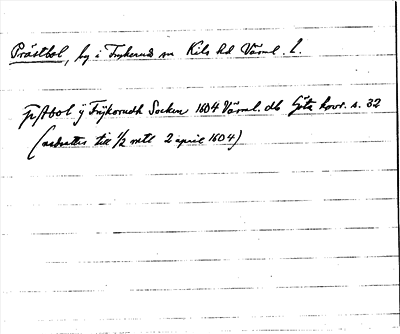 Prästbol, by i Frykerud sn Kils hd Värml. L.
Pstbol ÿ Frÿkerudh Socken 1604 Värml. db Göta hovr. s. 32
(nedsattes till 1/2 mtl 2 april 1604)